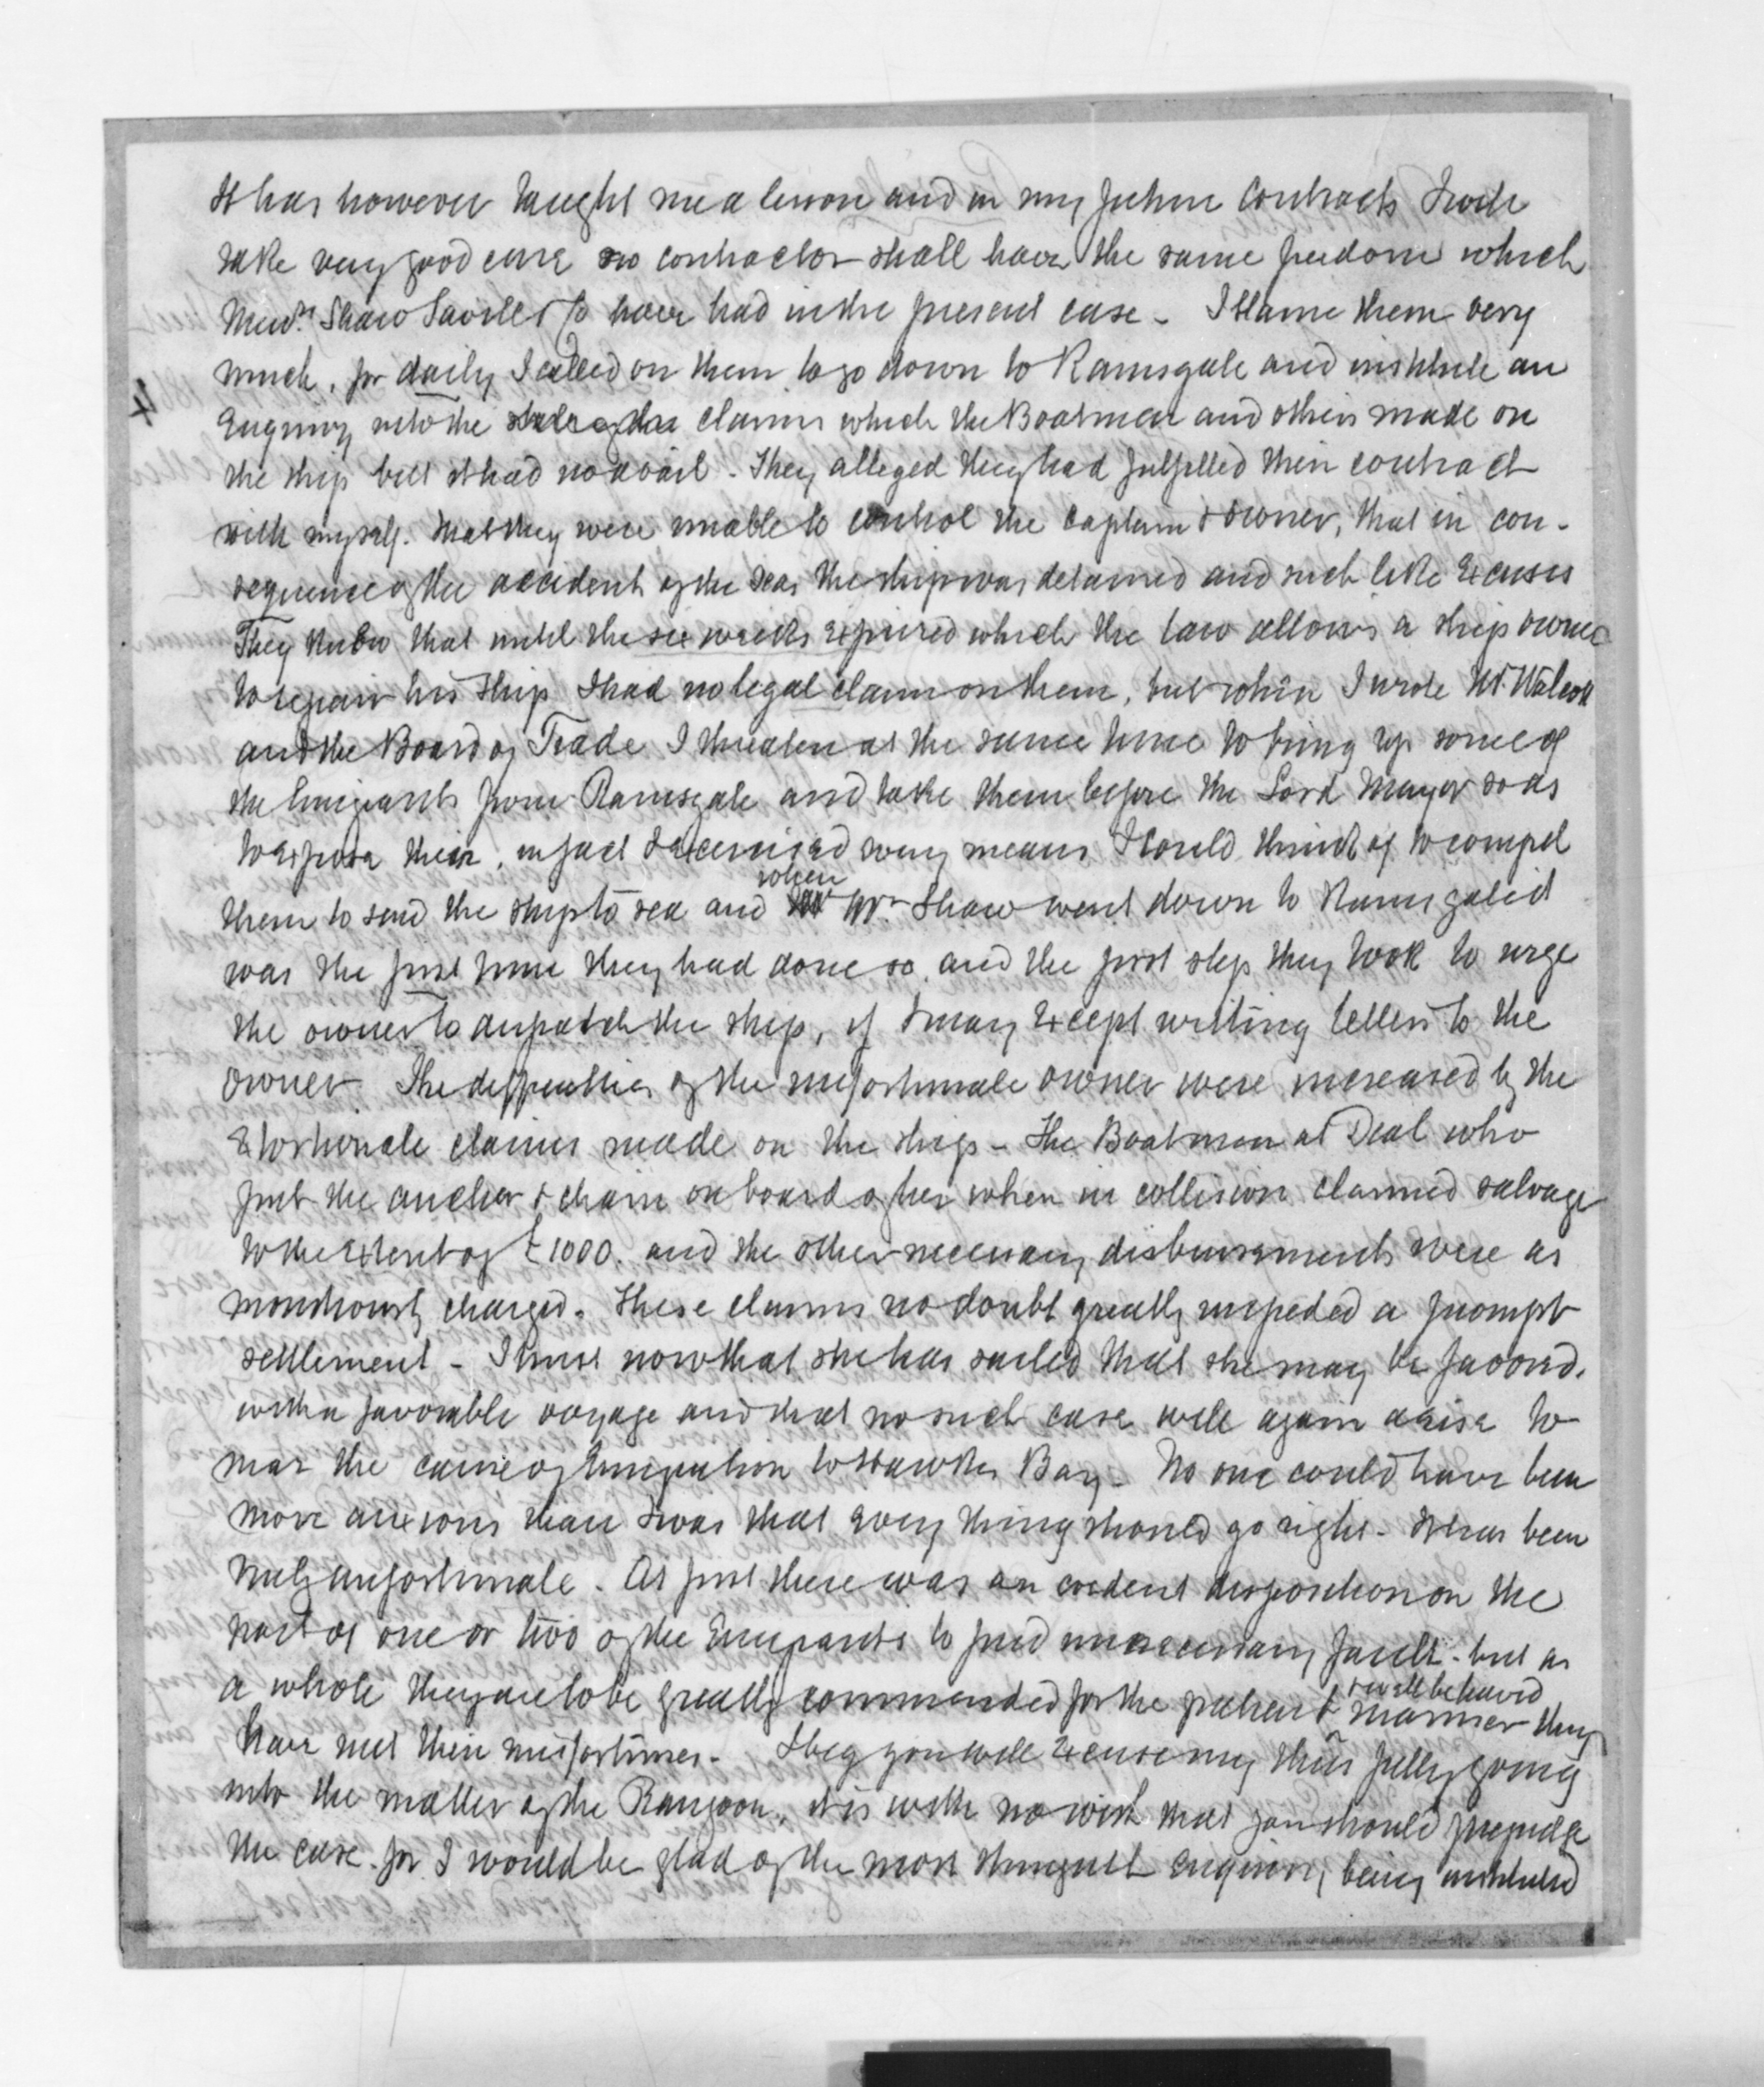 It has however taught me a lesson and in my future Contracts I will
take very good care no contractor shall have the same freedom which
Messrs Shaw Savill & Co have had in the present case - I blame them very
much, for daily I called on them to go down to Ramsgate and institute an
Enquiry into the claims which the Boatmen and others made on
the ship but it had no avail - They alleged they had fulfilled their contract
with myself. that they were unable to control the Captain & owner, that in con-
sequence of the accident of the Seas the ship was detained and such like Excuses
They knew that until the six weeks Expired which the law allows a ship owner
to repair his ship I had no legal claim on them, but when I wrote Mr. Walcott
and the Board of Trade I threaten at the same time to bring up some of
the Emigrants from Ramsgate and take them before the Lord Mayor so as
to Expose their, in fact I Exercised every means I could think of to compel
them to send the ship to sea and when Mr. Shaw went down to Ramsgate it
was the first time they had done so and the first step they took to urge
the owner to despatch the ship, if I may Except writing letters to the
owner. The difficulties of the unfortunate owner were increased by the
Extortionate claims made on the ship - The Boatmen at Deal who
put the anchor & chain on board of her when in collision claimed salvage
to the Extent of £1000. and the other necessary disbursements were as
monstrously charged. These claims no doubt greatly impeded a prompt
settlement - I trust now that she has sailed that she may be favord.
with a favorable voyage and that no such case will again arise to
mar the cause of Emigration to Hawkes Bay - No one could have been
more anxious than I was that every thing should go right - It has been
truly unfortunate. At first there was an evident disposition on the
part of one or two of the Emigrants to find unnecessary fault - but as
a whole they are to be greatly commended for the patient & well behaved manner they
have met their misfortunes - I beg you will Excuse my thus fully going
into the matter of the Rangoon, it is with no wish that you should prejudge
the case. for I would be glad of the most stringent enquiry being instituted
4